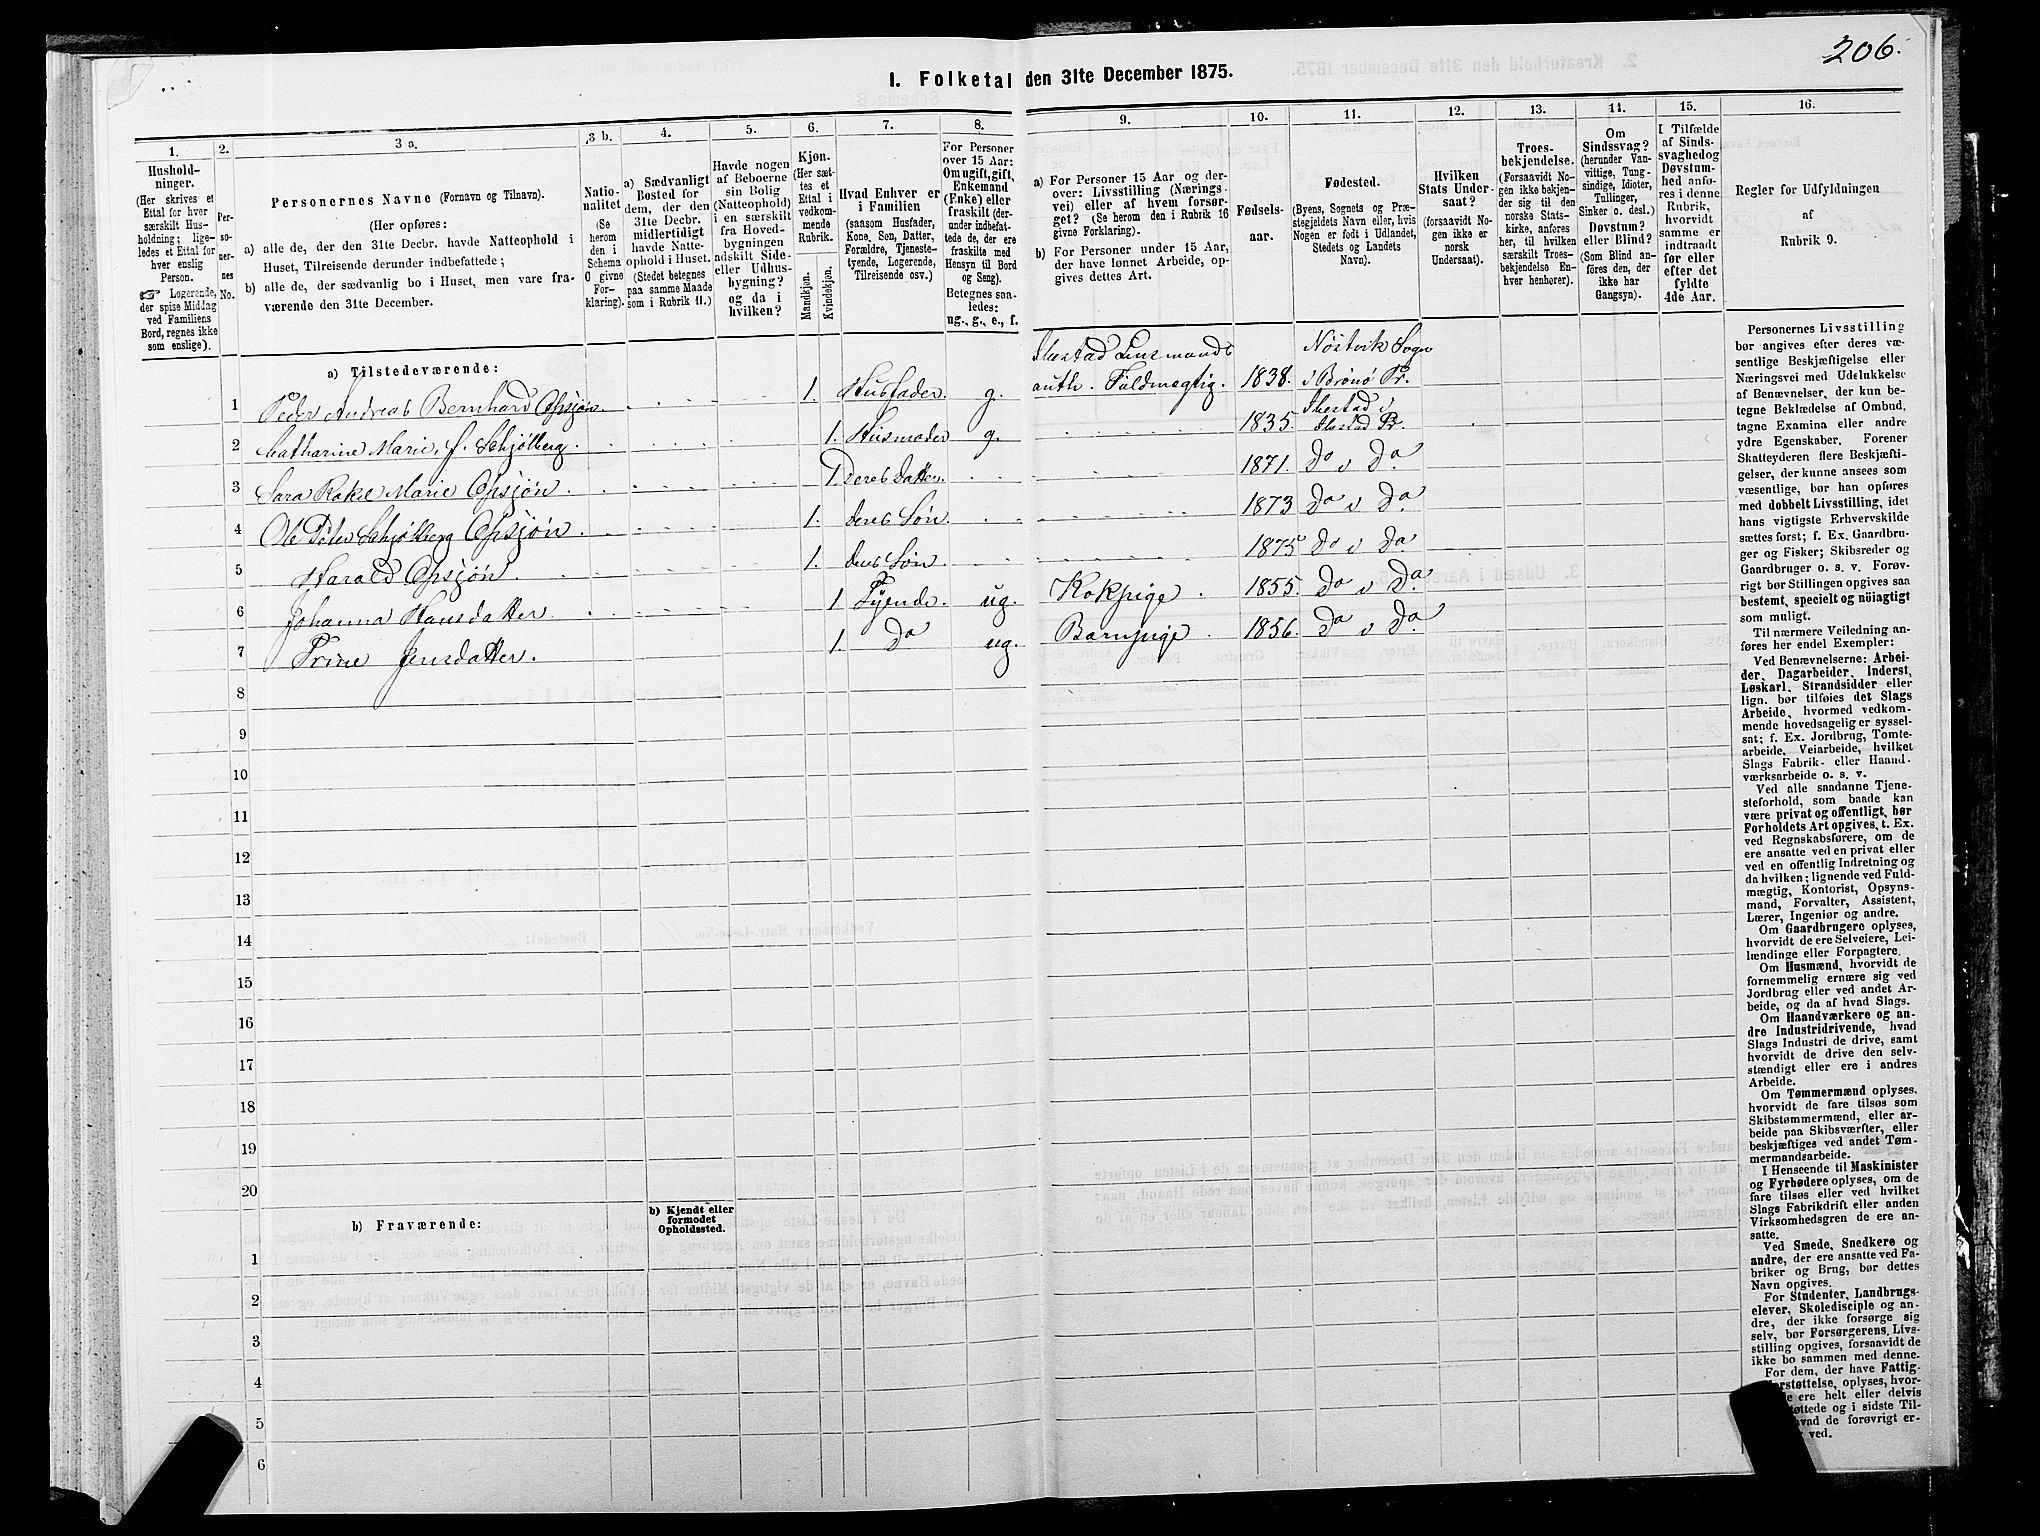 206.
I. Folketal den 31te December 1875.
1.
Hushold-
ninger.
(Her skrives et
Ettal for hver
særskilt Hus-
holdning; lige-
ledes et Ettal for
hver enslig
Person.
☞ Logerende,
der spise Middag
ved Familiens
Bord, regnes ikke
som enslige).
2.
Per-
so-
ner-
nes
No.
3 a.
Personernes Navne (Fornavn og Tilnavn).
(Her opføres:
a) alle de, der den 31te Decbr. havde Natteophold i
Huset, Tilreisende derunder indbefattede;
b) alle de, der sædvanlig bo i Huset, men vare fra-
værende den 31te December.
3 b.
Natio-
nalitet
(Se
herom
den i
Schema
O givne
For-
klaring).
4.
a) Sædvanligt
Bosted for
dem, der den
31te Decbr.
midlertidigt
havde Natte-
ophold i Huset.
(Stedet betegnes
paa samme Maade
som i Rubrik 11.)
5.
Havde nogen
af Beboerne
sin Bolig
(Natteophold)
i en særskilt
fra Hoved-
bygningen
adskilt Side-
eller Udhus-
bygning?
og da i
hvilken?
6.
Kjøn.
(Her sæt-
tes et
Ettal i
vedkom-
mende
Rubrik.
Mandkjøn.
Kvindekjøn.
7.
Hvad Enhver er
i Familien
(saasom Husfader,
Kone, Søn, Datter,
Forældre, Tjeneste-
tyende, Logerende,
Tilreisende osv.)
8.
For Personer
over 15 Aar:
Om ugift, gift,
Enkemand
(Enke) eller
fraskilt (der-
under indbefat-
tede de, der ere
fraskilte med
Hensyn til Bord
og Seng).
Betegnes saa-
ledes:
ug., g., e., f.
9.
a) For Personer 15 Aar og der-
over: Livsstilling (Nærings-
vei) eller af hvem forsør-
get? (Se herom den i Rubrik 16
givne Forklaring).
b) For Personer under 15 Aar,
der have lønnet Arbeide, op-
gives dettes Art.
10.
Fødsels-
aar.
11.
Fødested.
(Byens, Sognets og Præ-
stegjeldets Navn eller, hvis
Nogen er født i Udlandet,
Stedets og Landets
Navn).
12.
Hvilken
Stats Under-
saat?
(forsaavidt No-
gen ikke er
norsk
Undersaat).
13.
Troes-
bekjendelse.
(Forsaavidt No-
gen ikke bekjen-
der sig til den
norske Stats-
kirke, anføres
her, til hvilken
særskilt Troes-
bekjendelse En-
hver henhører).
14.
Om
Sindssvag?
(herunder Van-
vittige, Tung-
sindige, Idioter,
Tullinger,
Sinker o. desl.)
Døvstum?
eller Blind?
(Som Blind an-
føres den, der
ikke har
Gangsyn).
15.
I Tilfælde
af Sinds-
svaghed og
Døvstum-
hed anfø-
res i denne
Rubrik,
hvorvidt
samme er
indtraadt
før eller
efter det
fyldte
4de Aar.
16.
Regler for Udfyldningen
af
Rubrik 9.
a) Tilstedeværende:
1 Peder Andreas Bernhard Opsjøn. 1. Husfader. g. Ibestad Lensmands auth. Fuldmægtig. 1838. Sogn i Brønø Pr.
2 Catharine Marie, f. Schjølberg. 1. Husmoder g. 1835. Ibestad i Ibestad Pr.
3 Sara Marie Opsjøn. 1 Deres Datter. 1871. Do i Do
4 Ole Peter Schjølberg Opsjøn. 1. deres Søn. 1873 Do i Do
5 Harald Opsjøn. 1. deres Søn. 1875 Do i Do
6 Johanna Hansdatter. 1 Tyende. ug. Kokpige. 1855. Do i Do
7 Trine Jensdatter. 1. Do ug. Barnpige. 1856. Do i Do
8
9
10
11
12
13
14
15
16
17
18
19
20
b) Fraværende:
b) Kjendt eller
formodet
Opholdssted.
1
2
3
4
5
6
Personernes Livsstilling
bør angives efter deres væ-
sentlige Beskjæftigelse eller
Næringsvei med Udelukkelse
af Benævnelser, der kun be-
tegne Beklædelse af Ombud,
tagne Examina eller andre
ydre Egenskaber. Forener
Skatteyderen flere Beskjæfti-
gelser, der kunne ansees som
væsentlige, bør han opføres
med dobbelt Livsstilling, idet
hans vigtigste Erhvervskilde
sættes først; f. Ex. Gaardbru-
ger og Fisker; Skibsreder og
Gaardbruger o. s. v. Forøv-
rigt bør Stillingen opgives saa
bestemt, specielt og nöiagtigt
som muligt.
Til nærmere Veiledning an-
føres her endel Exempler:
Ved Benævnelserne: Arbei-
der, Dagarbeider, Inderst,
Løskarl, Strandsidder eller
lign. bør tilføies det Slags
Arbeide, hvormed vedkom-
mende hovedsagelig er syssel-
sat; f. Ex. Jordbrug, Tomte-
arbeide, Veiarbeide, hvilket
Slags Fabrik- eller Haand-
værksarbeide o. s. v.
Ved alle saadanne Tjene-
steforhold, som baade kan
være privat og offentligt, bør
Forholdets Art opgives, t. Ex.
ved Regnskabsførere, om de
ere ansatte ved en privat eller
ved en offentlig Indretning og
da hvilken; lignende ved Fuld-
mægtig, Kontorist, Opsyns-
mand, Forvalter, Assistent,
Lærer, Ingeniør og andre.
Om Gaardbrugere oplyses,
hvorvidt de ere Selveiere, Lei-
lændinge eller Forpagtere.
Om Husmænd, hvorvidt de
fornemmelig ernære sig ved
Jordbrug eller ved andet Ar-
beide, og da af hvad Slags.
Om Haandværkere og an-
dre Industridrivende, hvad
Slags Industri de drive, samt
hvorvidt de drive den selv-
stændigt eller ere i andres
Arbeide.
Om Tømmermænd oplyses,
hvorvidt de fare tilsøs som
Skibstømmermænd, eller ar-
beide paa Skibsværfter, eller
beskjæftiges ved andet Tøm-
mermandsarbeide.
I Henseende til Maskinister
og Fyrbødere oplyses, om de
fare tilsøs eller ved hvilket
Slags Fabrikdrift eller anden
Virksomhedsgren de ere an-
satte.
Ved Smede, Snedkere og
andre, der ere ansatte ved Fa-
briker og Brug, bør dettes
Navn opgives.
For Studenter, Landbrugs-
elever, Skoledisciple og an-
dre, der ikke forsørge sig
selv, bør Forsørgerens Livs-
stilling opgives, forsaavidt de
ikke bo sammen med denne.
For dem, der have Fattig-
rstøttelse, oplyses, hvor-
ere helt eller delvis
øttede og i sidste Til-
vad de forøvrigt er-
ved.